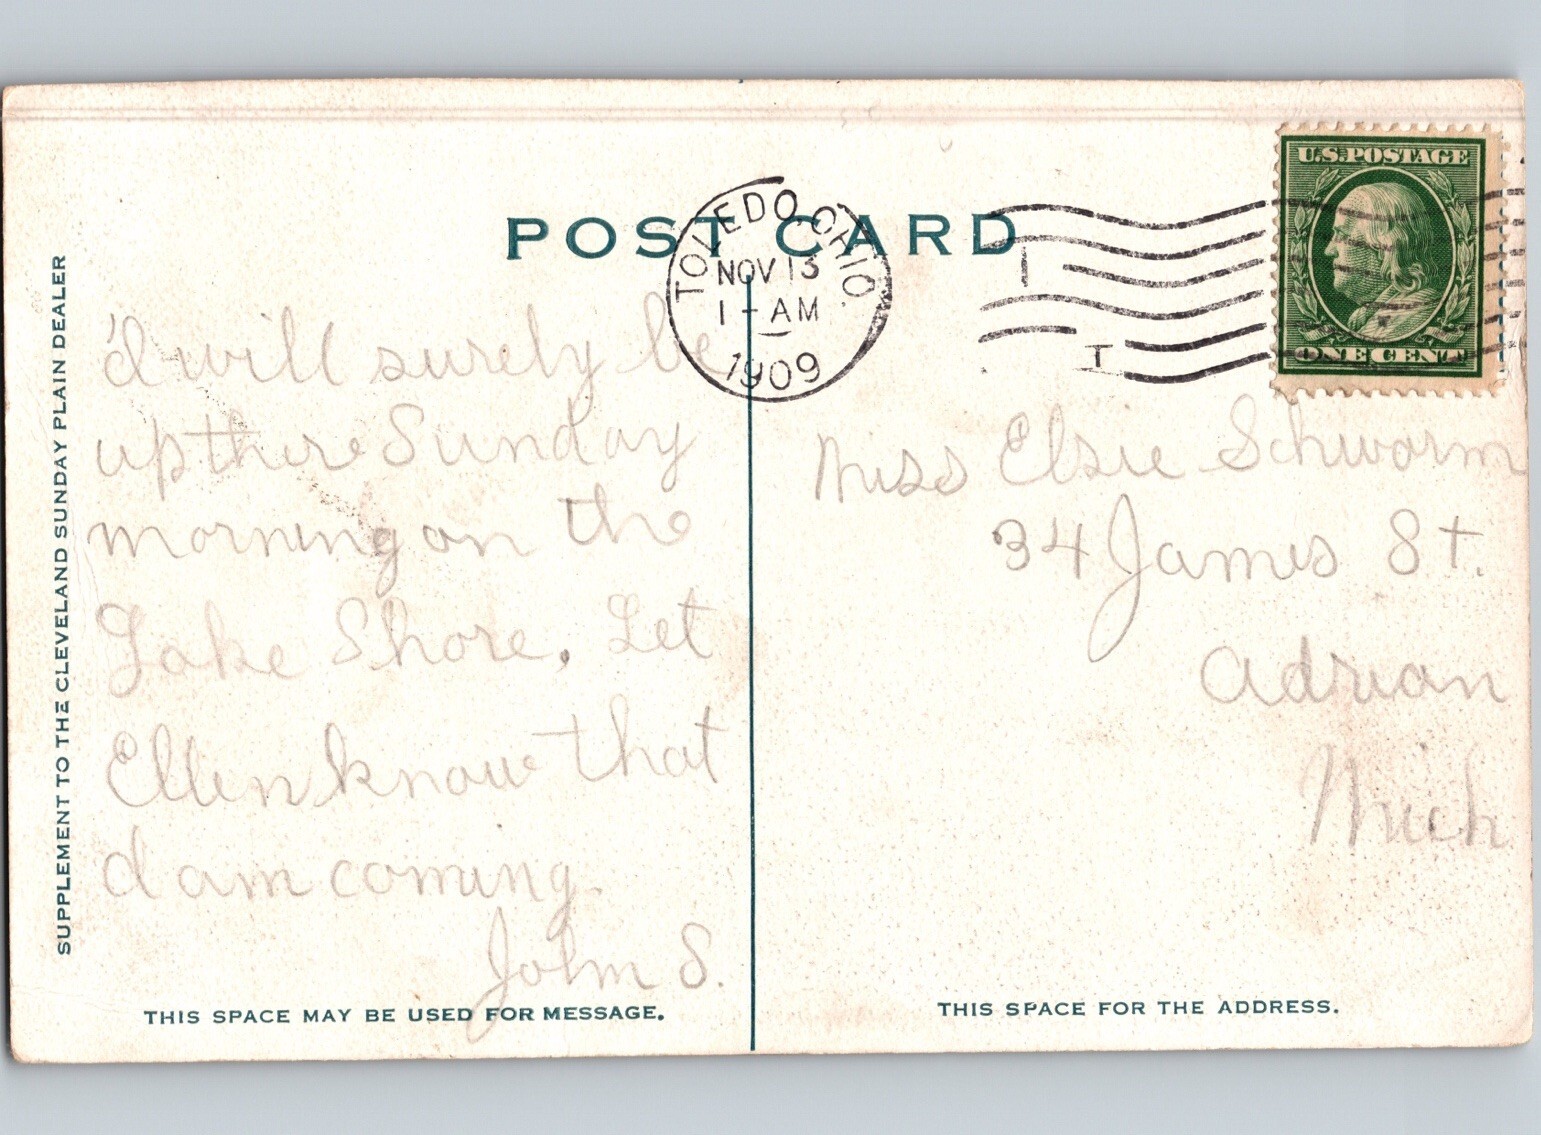 SUPPLEMENT TO THE CLEVELAND SUNDAY PLAIN DEALER
POST CARD
TOLEDO, OHIO.
NOV 13
1 - AM
1909
U.S. POSTAGE
ONE CENT
I will surely be
up there Sunday
morning on the
Lake Shore. Let
Ellen know that
I am coming.
John S.
THIS SPACE MAY BE USED FOR MESSAGE.
Miss Elsie Schwarm
34 James St.
Adrian
Mich
THIS SPACE FOR THE ADDRESS.